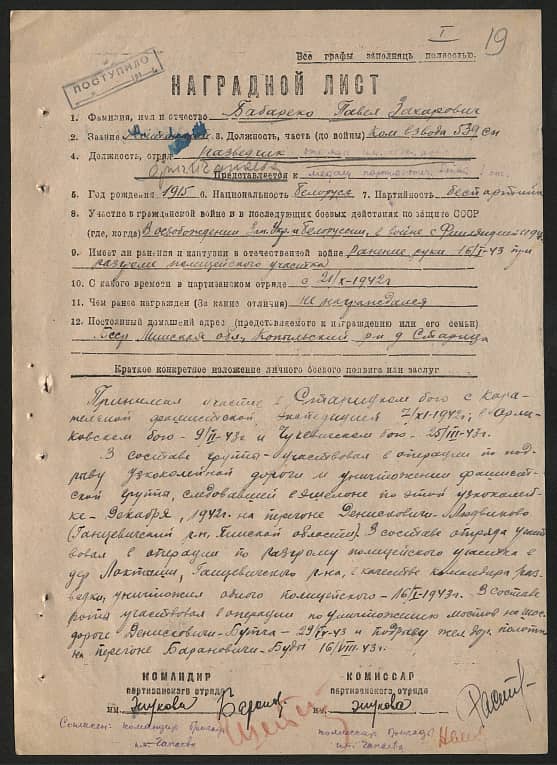 I
19
Все графы заполнять полностью.
ПОСТУПИЛО
НАГРАДНОЙ ЛИСТ
1. Фамилия, имя и отчество Бабареко Павел Захарович
2. Звание 3. Должность, часть (до войны) Ком взвода 539 сп
4. Должность, отряд Разведчик
бриг. Чапаева
Представляется к медали партизан
5. Год рождения 1915 6. Национальность белорус 7. Партийность беспартийн
8. Участие в гражданской войне и в последующих боевых действиях по защите СССР
(где, когда) В освобождении Зап. Укр. и Белоруссии, в войне с Финляндией
9. Имеет ли ранения и контузии в отечественной войне Ранение руки 16/I-43 при
разгроме полицейского участка
10. С какого времени в партизанском отряде с 21/X-1942 г
11. Чем ранее награжден (За какие отличия) не награждался
12. Постоянный домашний адрес (представляемого к награждению или его семьи)
БССР Минская обл, Копыльский р-н д Старица
Краткое конкретное изложение личного боевого подвига или заслуг
Принимал участие в Старицком бою с кара-
тельной фашистской экспедицией 7/XI-1942г; в Орли-
ковском бою - 9/II-43г и бою - 25/III-43г.
В составе группы участвовал в операции по под-
рыву узкоколейной дороги и уничтожении фашист-
ской группы, следовавшей в эшелоне по этой узкоколей-
ке - Декабря, 1942г на перегоне Денисковичи-Людвиково
(Ганцевичский р-н, Пинской области). В составе отряда участ
вовал в операции по разгрому полицейского участка в
дер Локтыши, Ганцевичского р-на, в качестве командира раз-
ведки, уничтожил одного полицейского - 16/I-1943г. В составе
роты участвовал в операции по уничтожению мостов на
дороге Денисковичи - - 29/IV-43 и подрыву жел дор полотн
на перегоне Барановичи-Буды 16/VIII-43г.
КОМАНДИР КОМИССАР
партизанского отряда партизанского отряда
им. Жукова им. Жукова
Согласен: командир бригады комиссар бригады
им. Чапаева им. Чапаева